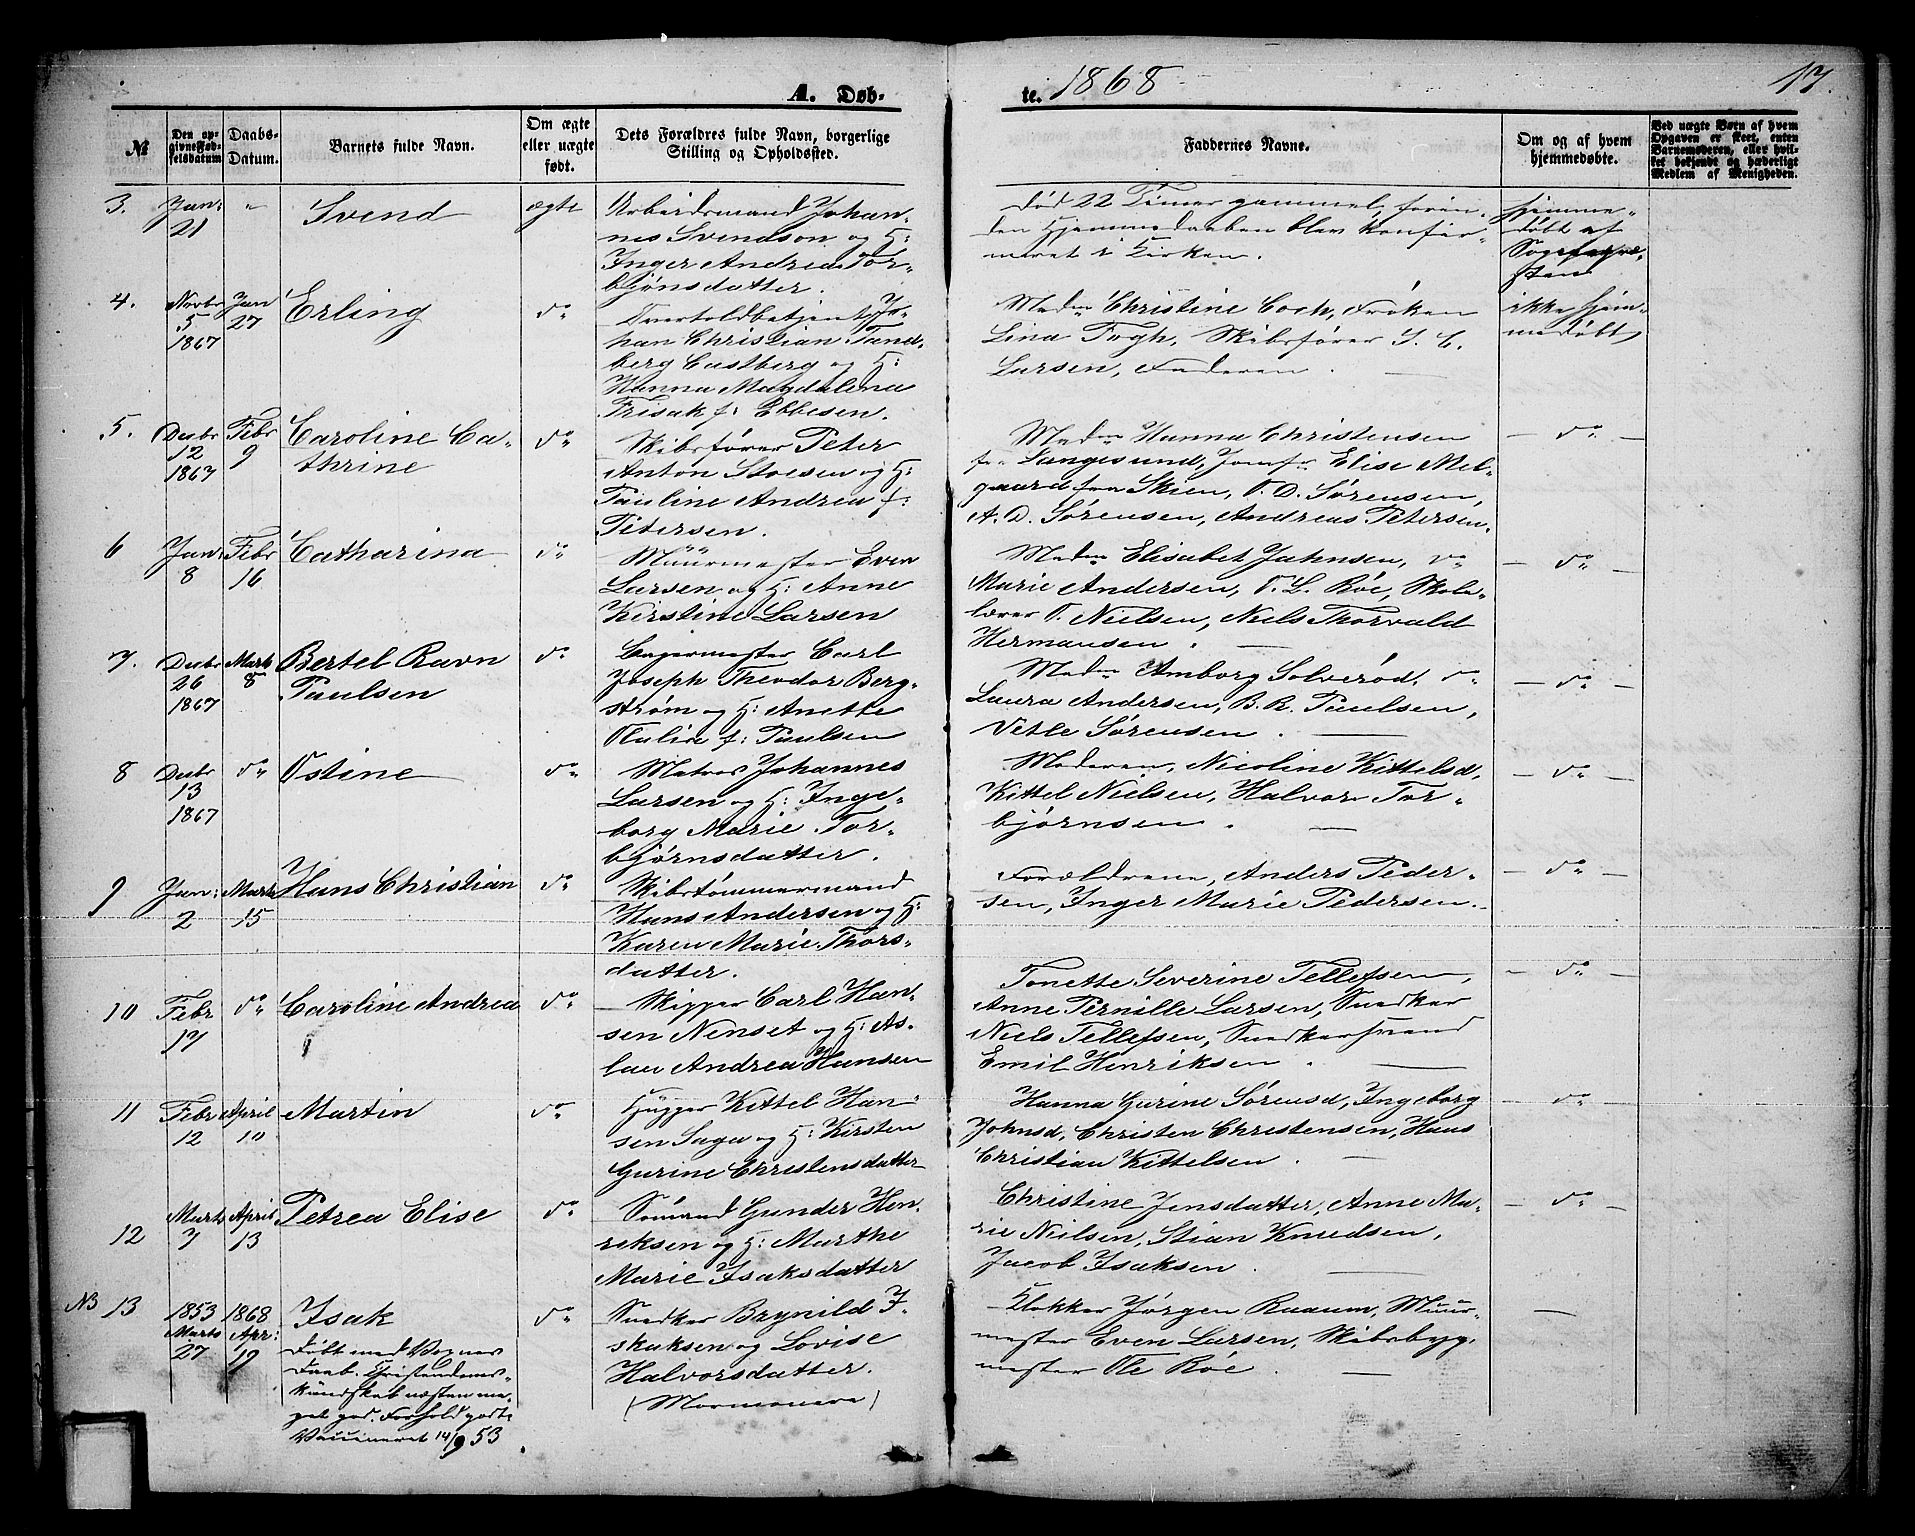 A. Døb-
te. 1868
17.
№
Den op-
givne Fød-
selsdatum
Daabs-
Datum.
Barnets fulde Navn.
Om ægte
eller uægte
født.
Dets Forældres fulde Navn, borgerlige
Stilling og Opholdssted.
Faddernes Navne.
Om og af hvem
hjemmedøbte.
Ved uægte Børn af hvem
Opgaven er skeet, enten
Barnemoderen, eller hvil-
ket bekjendt og hæderligt
Medlem af Menigheden.
3.
Jan:
21
"
Svend
ægte
Arbeidsmand Johan-
nes Svendsen og H:
Inger Andrea Tor-
bjønsdatter.
Død 22 Timer gammel, foren-
den Hjemmedaaben blev konfir-
meret i Kirken.
hjemme-
døbt af
Sognepræ-
sten
4.
Novbr
5
1867
Jan
27
Erling
do
Toldbetjent Jo-
han Christian Tand-
berg Castberg og H:
Hanna Magdalena
Frisak f: Ebbesen.
Madm Christine Coch, Frøken
Lina Fogh, Skibsfører J. C.
Larsen, Faderen.
ikke hjem-
medøbt
5.
Desbr
12
1867
Febr
9
Caroline Ca-
thrine
do
Skibsfører Peter
Anton Stoesen og H:
Pauline Andrea f:
Petersen.
Madm Hanna Christensen
fr Langesund, Jomfr Elise Mel-
gaard fra Skien, O. D. Sørensen,
A. D. Sørensen, Andreas Petersen.
— do —
6
Jan:
8
Febr
16
Catharina
do
Muurmester Even
Larsen og H: Anne
Kirstine Larsen
Madm Elisabet Jahnsen, do
Marie Andersen, O. L. Röe, Skole-
lærer O. Nielsen, Niels Thorvald
Hermansen.
— do —
7.
Desbr
26
1867
Marts
8
Bertel Ravn
Paulsen
do
Carl
Joseph Theodor Berg-
strøm og H: Anette
Olulia f: Paulsen
Madm Amborg Solverød, do
Laura Andersen, B. R. Paulsen,
Vetle Sørensen.
— do —
8
Desbr
13
1867
do
Ostine
do
Matros Johannes
Larsen og H: Inge-
borg Marie Tor-
bjørnsdatter.
Moderen, Nicoline Kittelsd,
Kittel Nielsen, Halvor Tor-
bjørnsen.
— do —
9
Jan:
2
Marts
15
Hans Christian
do
Skibstømmermand
Hans Andersen og H:
Karen Marie Thors-
datter.
Forældrene, Anders Peder-
sen, Inger Marie Pedersen.
— do —
10
Febr
17
do
Caroline Andrea
do
Skipper Carl Han-
sen Nenset og H: As-
lau Andrea Hansen
Tonette Severine Tellefsen,
Anne Pernille Larsen, Snedker
Niels Tellefsen, Snedkersvend
Emil Henriksen.
— do —
11
Febr
12
April
10
Martin
do
Hugger Kittel Han-
sen Saga og H: Kirsten
Gurine Christensdatter
Hanna Gurine Sørensd, Ingeborg
Johnsd, Christen Christensen, Hans
Christian Kittelsen.
— do —
12
Marts
7
April
13
Petrea Elise
do
Sømand Gunder Hen-
reksen og H: Marthe
Marie Isaksdatter
Christine Jensdatter, Anne Ma-
rie Nielsen, Stian Knudsen,
Jacob Isaksen.
— do —
NB 13
1853
Marts
27
1868
Apr:
19
Isak
Døbt med Voxnes
Daab. Christendoms-
kundskab næsten me-
get god. Forhold godt.
Vaccineret 14/9 53.
do
Snedker Brynild I-
saksen og Lovise
Halvorsdatter.
(Mormonere)
Klokker Jørgen Raaum, Muur-
mester Even Larsen, Skibsbyg-
mester Ole Röe.
—